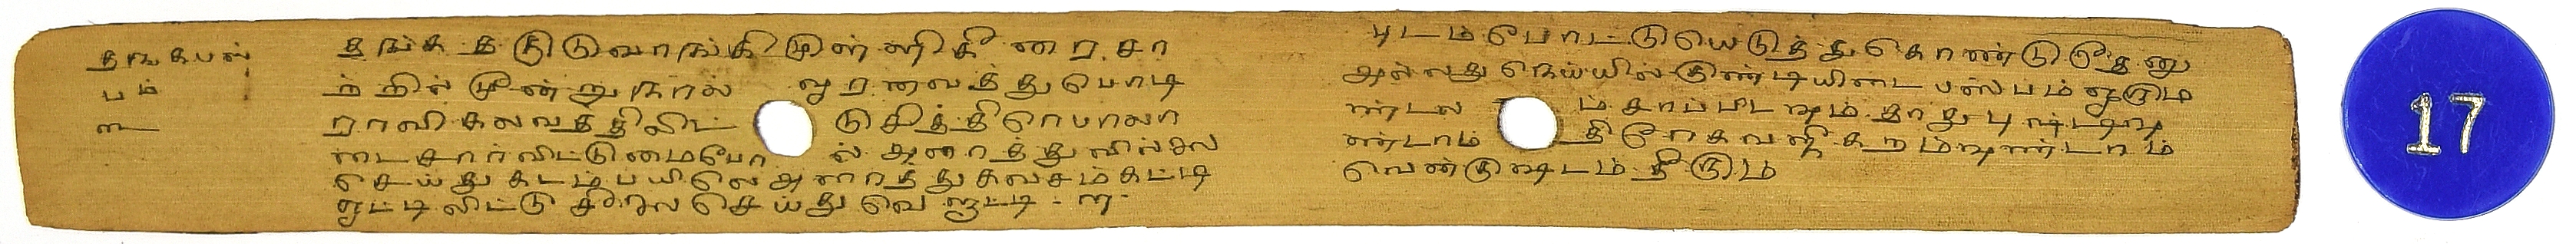 தங்கபஸ்
பம்
தங்க தகடு வாங்கி முள்ளிகீரை சா
ற்றில் மூன்று நாள் ஊரவைத்து பொடி
ராவி கலவத்திலிட்டு சித்திரபாலா
டைசார் விட்டு மைபோல் அரைத்து வில்லை
செய்து கடம்பயிலை அரைத்து கவசம் கட்டி
ஓட்டிலிட்டு சீலை செய்து வெறட்டி
புடம் போட்டு யெடுத்து கொண்டு தேனு
அல்லது நெய்யில் குண்டியிடை பஸ்பம் ஒரும
ண்டலம் சாப்பிட வும் தாது புஷ்டியு
ண்டாம் திரேகவஸீகறமுமுண்டாம்
வெண்குஷ்டம் தீரும்
17